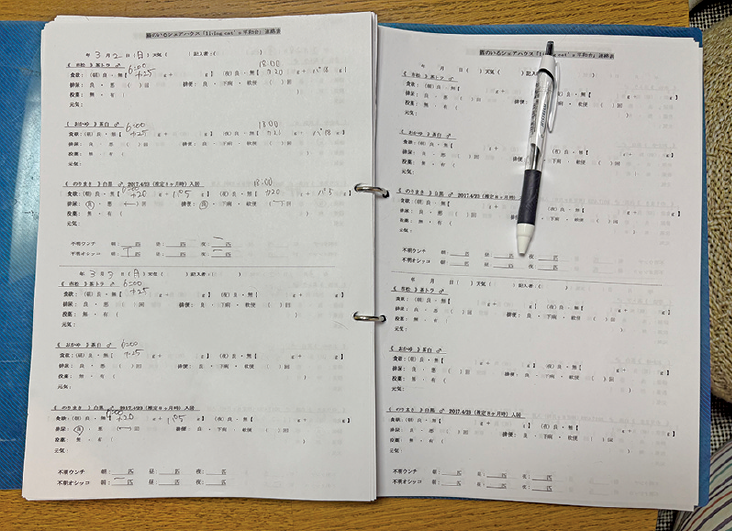 猫のいるシェアハウス「Living cat's 平和台」連絡表
年 3月 2日 (日) 天気 ( ) 記入者 : ( )
《 市松 》茶トラ ♂ 6:00 18:00
食欲 : (朝) 良・無【 +25 g + g 】 (夜) 良・無【 +20 g + g】
排尿 : 良 ・ 悪 ( ) 回 排便 : 良 ・ 下痢 ・ 軟便 ( ) 回
投薬 : 無 ・ 有 ( )
元気 :
《 おかゆ 》茶白 ♂ 6:00 18:00
食欲 : (朝) 良・無【 +25 g + g 】 (夜) 良・無【 g + g】
排尿 : 良 ・ 悪 ( ) 回 排便 : 良 ・ 下痢 ・ 軟便 ( ) 回
投薬 : 無 ・ 有 ( )
元気 :
《 のりまき 》白黒 ♂ 2017.4/23 (推定8ヶ月時) 入居 18:00
食欲 : (朝) 良・無【 +20 g + 105 g 】 (夜) 良・無【 +20 g + g】
排尿 : 良 ・ 悪 (一) 回 排便 : 良 ・ 下痢 ・ 軟便 (一) 回
投薬 : 無 ・ 有 ( )
元気 :
不明ウンチ 朝 : 匹 昼 : 匹 夜 : 匹
不明オシッコ 朝 : 匹 昼 : 匹 夜 : 匹
年 3月 3日 (月) 天気 ( ) 記入者 : ( )
《 市松 》茶トラ ♂ 6:00
食欲 : (朝) 良・無【 +25 g + g 】 (夜) 良・無【 g + g】
排尿 : 良 ・ 悪 ( ) 回 排便 : 良 ・ 下痢 ・ 軟便 ( ) 回
投薬 : 無 ・ 有 ( )
元気 :
《 おかゆ 》茶白 ♂ 6:00
食欲 : (朝) 良・無【 +25 g + g 】 (夜) 良・無【 g + g】
排尿 : 良 ・ 悪 ( ) 回 排便 : 良 ・ 下痢 ・ 軟便 ( ) 回
投薬 : 無 ・ 有 ( )
元気 :
《 のりまき 》白黒 ♂ 2017.4/23 (推定8ヶ月時) 入居
食欲 : (朝) 良・無【 6:00 +20 g + 105 g 】 (夜) 良・無【 g + g】
排尿 : 良 ・ 悪 (一) 回 排便 : 良 ・ 下痢 ・ 軟便 ( ) 回
投薬 : 無 ・ 有 ( )
元気 :
不明ウンチ 朝 : 匹 昼 : 匹 夜 : 匹
不明オシッコ 朝 : 匹 昼 : 匹 夜 : 匹
猫のいるシェアハウス「Living cat's 平和台」連絡表
年 月 日 ( ) 天気 ( ) 記入
《 市松 》茶トラ ♂
食欲 : (朝) 良・無【 (夜) 良・無【 g + g】
排尿 : 良 ・ 悪 ( ) 回 排便 : 下痢 ・ 軟便 ( ) 回
投薬 : 無 ・ 有 ( )
元気 :
《 おかゆ 》茶白 ♂
食欲 : (朝) 良・無【 (夜) 良・無【 g + g】
排尿 : 良 ・ 悪 ( ) 回 排便 : 下痢 ・ 軟便 ( ) 回
投薬 : 無 ・ 有 ( )
元気 :
《 のりまき 》白黒 ♂ 2017.4/23 (推定8ヶ月時) 入居
食欲 : (朝) 良・無【 (夜) 良・無【 g + g】
排尿 : 良 ・ 悪 ( ) 回 排便 : 下痢 ・ 軟便 ( ) 回
投薬 : 無 ・ 有 ( )
元気 :
不明ウンチ 朝 : 匹 昼 : 匹 夜 : 匹
不明オシッコ 朝 : 匹 昼 : 匹 夜 : 匹
年 月 日 ( ) 天気 ( ) 記入者 : ( )
《 市松 》茶トラ ♂
食欲 : (朝) 良・無【 g 】 (夜) 良・無【 g + g】
排尿 : 良 ・ 悪 ( ) 回 排便 : 良 ・ 下痢 ・ 軟便 ( ) 回
投薬 : 無 ・ 有 ( )
元気 :
《 おかゆ 》茶白 ♂
食欲 : (朝) 良・無【 g + g 】 (夜) 良・無【 g + g】
排尿 : 良 ・ 悪 ( ) 回 排便 : 良 ・ 下痢 ・ 軟便 ( ) 回
投薬 : 無 ・ 有 ( )
元気 :
《 のりまき 》白黒 ♂ 2017.4/23 (推定8ヶ月時) 入居
食欲 : (朝) 良・無【 g + g 】 (夜) 良・無【 g + g】
排尿 : 良 ・ 悪 ( ) 回 排便 : 良 ・ 下痢 ・ 軟便 ( ) 回
投薬 : 無 ・ 有 ( )
元気 :
不明ウンチ 朝 : 匹 昼 : 匹 夜 : 匹
不明オシッコ 朝 : 匹 昼 : 匹 夜 : 匹